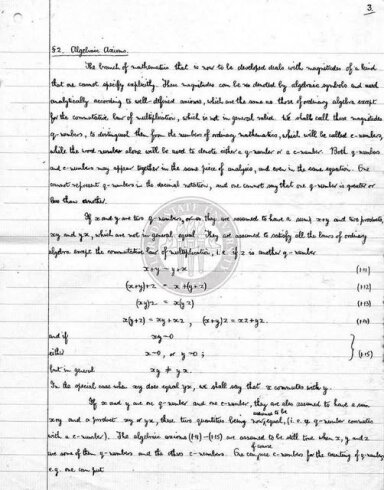 3.
§2. Algebraic Axioms.
The branch of mathematics that is now to be developed deals with magnitudes of a kind
that one cannot specify explicitly. These magnitudes can be denoted by algebraic symbols and used
analytically according to well-defined axioms, which are the same as those of ordinary algebra except
for the commutative law of multiplication, which is not in general valid. We shall call these magnitudes
q-numbers, to distinguish them from the numbers of ordinary mathematics, which will be called c-numbers,
while the word number alone will be used to denote either a q-number or a c-number. Both q-numbers
and c-numbers may appear together in the same piece of analysis, and even in the same equation. One
cannot represent q-numbers in the decimal notation, and one cannot say that one q-number is greater or
less than another.
If x and y are two q-numbers, they are assumed to have a sum x+y and two products
xy and yx, which are not in general equal. They are assumed to satisfy all the laws of ordinary
algebra except the commutative law of multiplication, i.e. if z is another q-number
x+y = y+x (1·11)
(x+y)+z = x+(y+z) (1·12)
(xy)z = x(yz) (1·13)
x(y+z) = xy+xz, (x+y)z = xz+yz. (1·14)
and if xy=0
either x=0, or y=0; (1·15)
but in general xy ≠ yx.
In the special case when xy does equal yx, we shall say that x commutes with y.
If x and y are one q-number and one c-number, they are also assumed to have a sum
assumed to be
x+y and a product xy or yx, these two quantities being now equal, (i.e. a q-number commutes
with a c-number). The algebraic axioms (1·11)-(1·15) are assumed to be still true when x, y and z
are some of them q-numbers and the others c-numbers. One can use c-numbers for the counting of q-numbers
of course
e.g. one can put